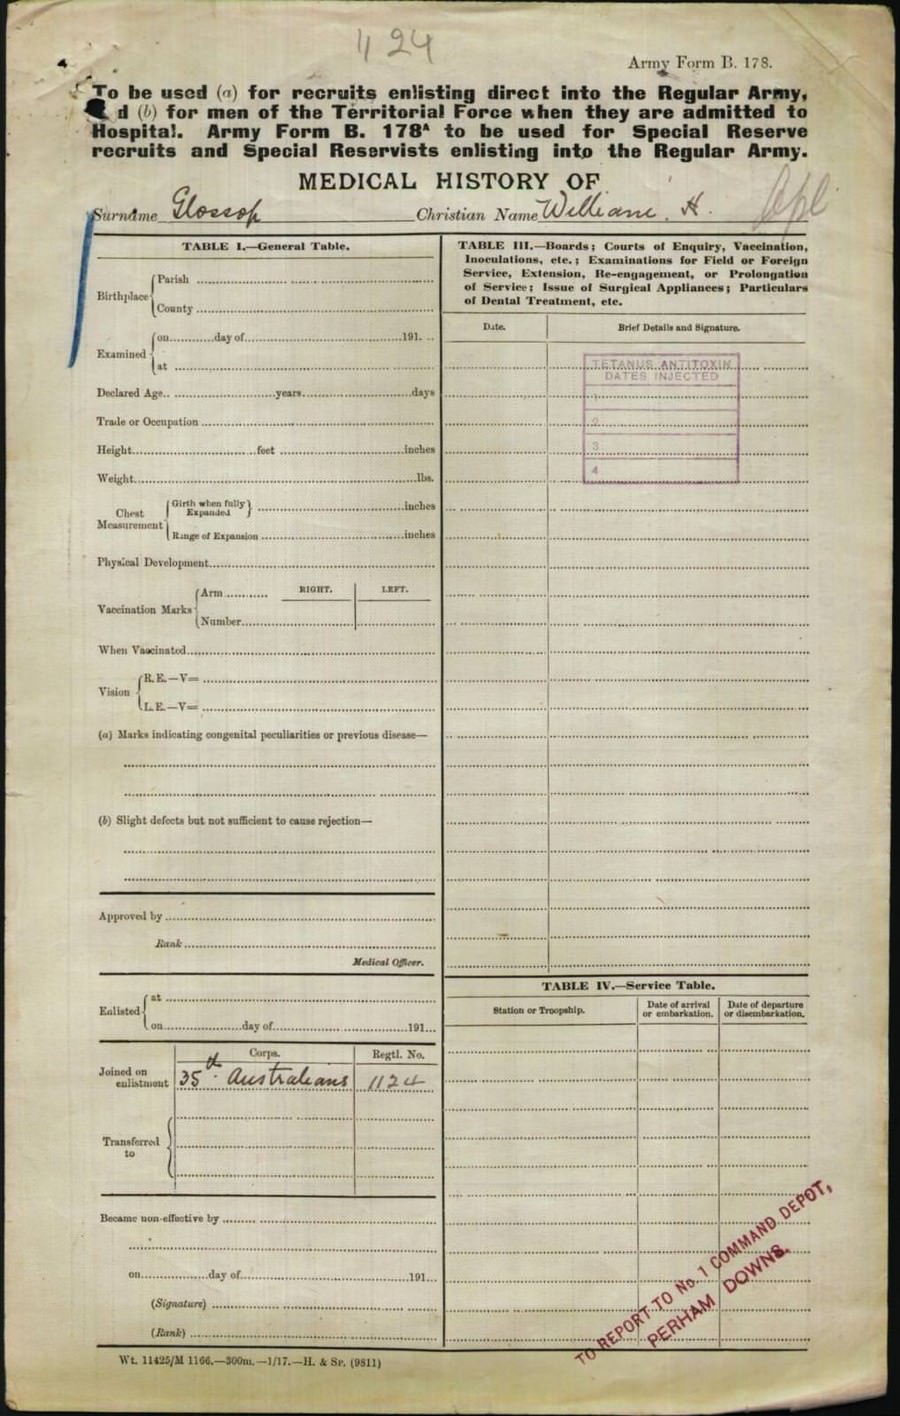 1124
Army Form B. 178.
To be used (a) for recruits enlisting direct into the Regular Army,
d (b) for men of the Territorial Force when they are admitted to
Hospital. Army Form B. 178A to be used for Special Reserve
recruits and Special Reservists enlisting into the Regular Army.
MEDICAL HISTORY OF
Surname Glossop Christian Name William. H. Cpl
TABLE I.—General Table.
Birthplace
Parish
County
Examined
on day of 191
at
Declared Age years days
Trade or Occupation
Height feet inches
Weight lbs.
Chest Measurement
Girth when fully Expanded inches
Range of Expansion inches
Physical Development
Vaccination Marks
Arm RIGHT. LEFT.
Number
When Vaccinated
Vision
R.E.—V=
L.E.—V=
(a) Marks indicating congenital peculiarities or previous disease—
(b) Slight defects but not sufficient to cause rejection—
Approved by
Rank
Medical Officer.
Enlisted
at
on day of 191
Corps. Regtl. No.
Joined on enlistment 35th Australians 1124
Transferred to
Became non-effective by
on day of 191
(Signature)
(Rank)
Wt. 11425/M 1166.—300m.—1/17.—H. & Sp. (9811)
TABLE III.—Boards; Courts of Enquiry, Vaccination,
Inoculations, etc.; Examinations for Field or Foreign
Service, Extension, Re-engagement, or Prolongation
of Service; Issue of Surgical Appliances; Particulars
of Dental Treatment, etc.
Date. Brief Details and Signature.
TETANUS ANTITOXIN
DATES INJECTED
1
2
3
4
TABLE IV.—Service Table.
Station or Troopship. Date of arrival or embarkation. Date of departure or disembarkation.
TO REPORT TO No. 1 COMMAND DEPOT,
PERHAM DOWNS.